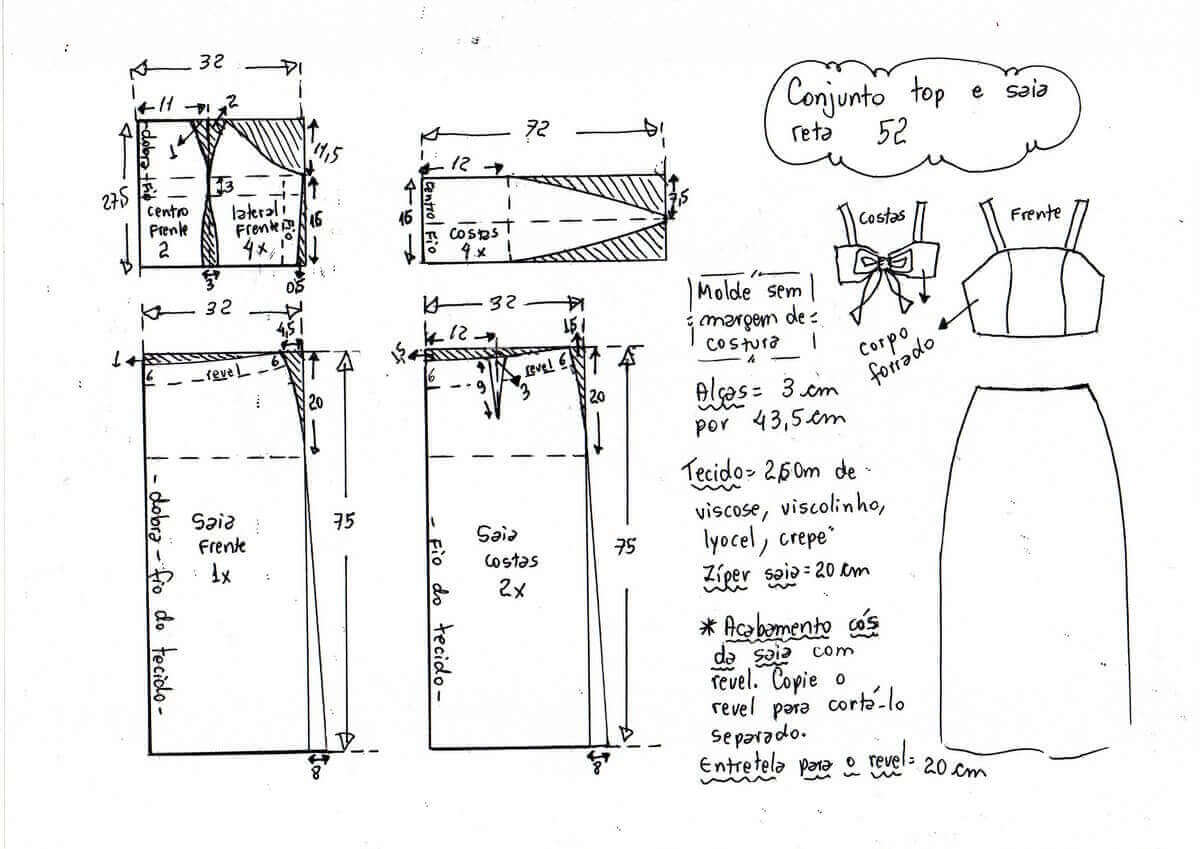 Conjunto top e saia
reta 52
32
11
2
1
dobra - fio
27,5
11,5
3
centro
frente
2
lateral
frente
4x
fio
15
3
0,5
72
12
7,5
15
centro fio
costas
4x
Costas
Frente
corpo
forrado
Molde sem
margem de
costura
Alças = 3 cm
por 43,5 cm
Tecido = 2,60m de
viscose, viscolinho,
lyocel, crepe"
Zíper saia = 20 cm
* Acabamento cós
da saia com
revel. Copie o
revel para cortá-lo
separado.
Entretela para o revel = 20 cm
32
4,5
1
6
revel
6
20
75
- dobra - fio do tecido -
Saia
Frente
1x
8
32
12
1,5
6
9
3
revel
6
20
75
- fio do tecido -
Saia
costas
2x
8